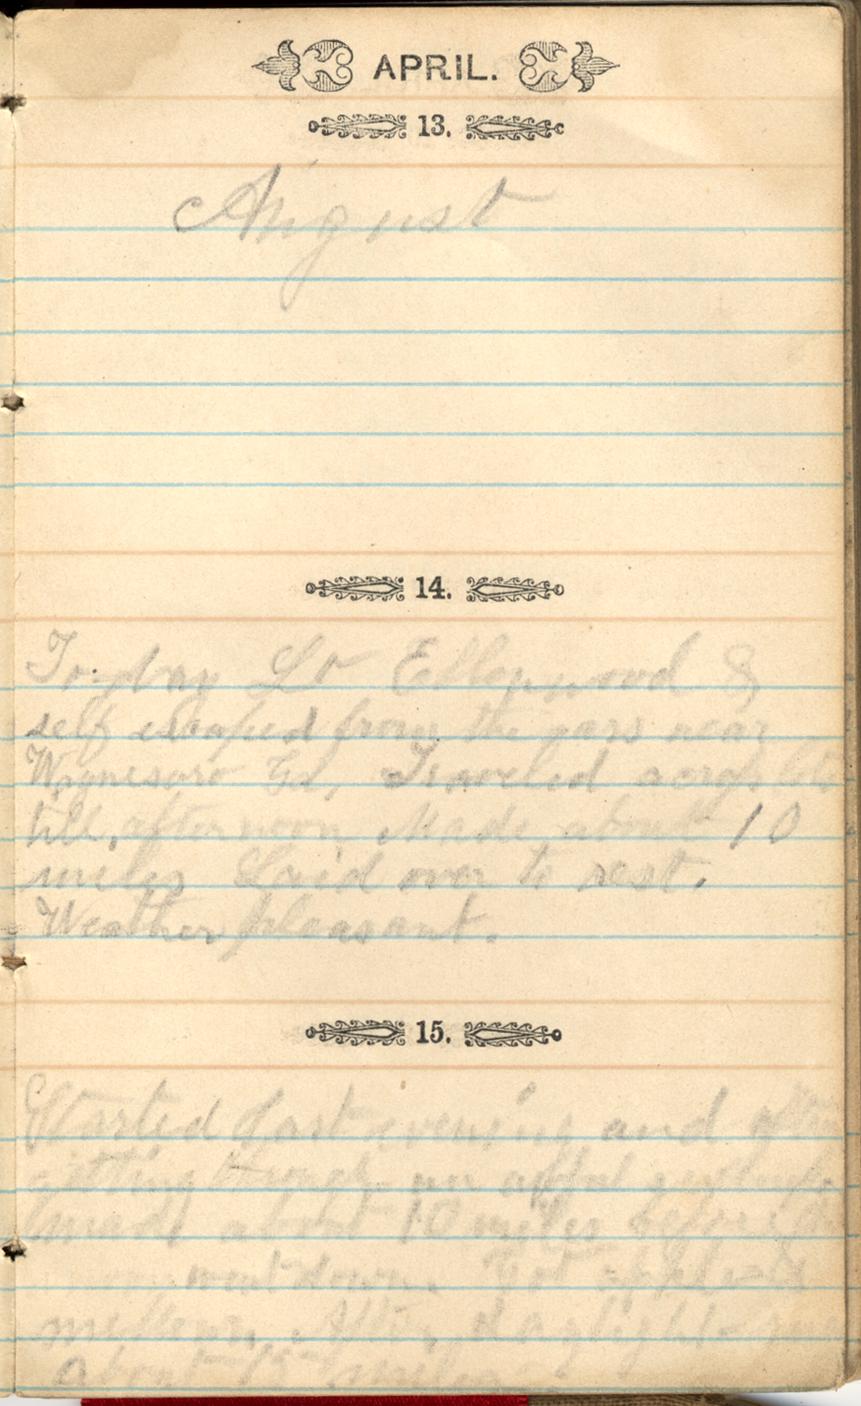 APRIL.
13.
August
14.
To-day Lt Ellenwood &
self escaped from the cars near
Waynesboro Ga, Traveled across lots
till afternoon Made about 10
miles Laid over to rest.
Weather pleasant.
15.
Started last evening and after
getting through an awful
made about 10 miles before the
moon went down. Got apples &
mellons. After daylight
about 15 miles